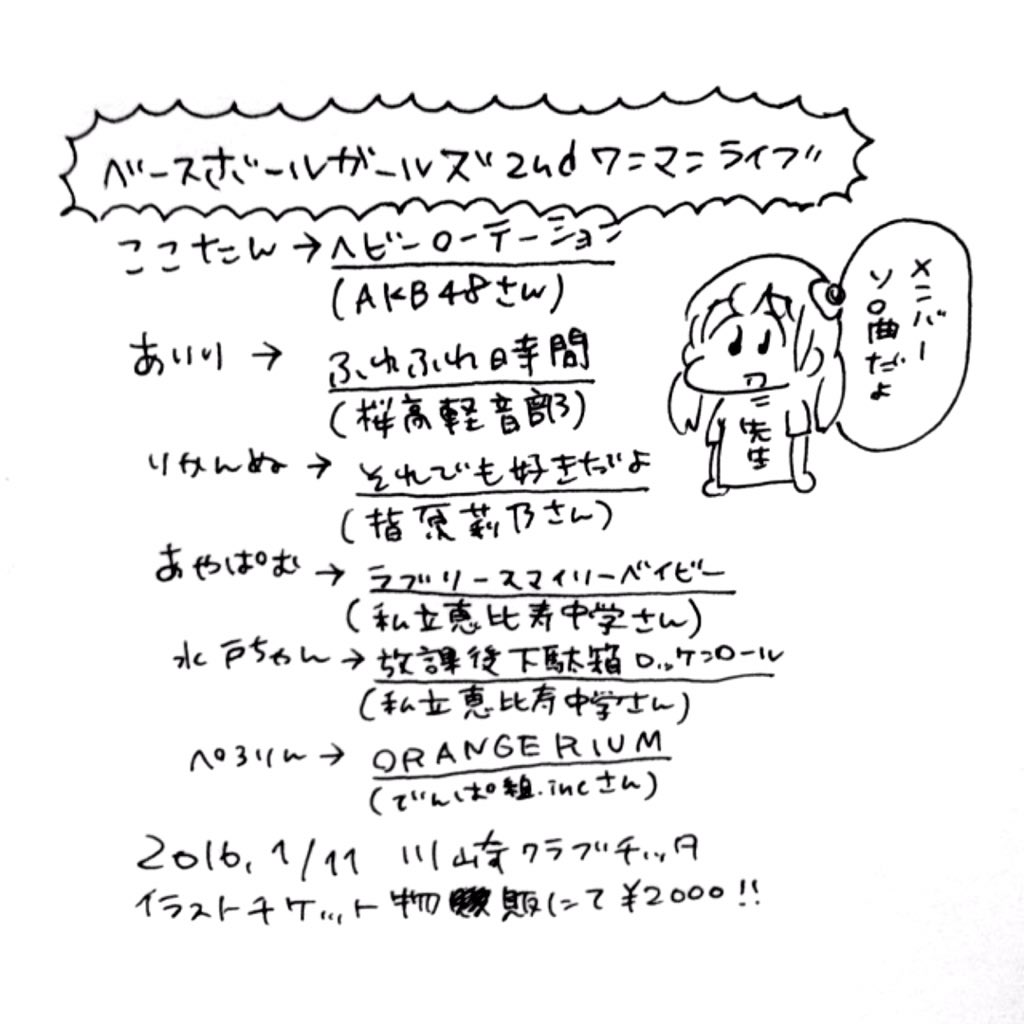 ベースボールガールズ2ndワンマンライブ
ここたん→ヘビーローテーション
(AKB48さん)
あいり→ふわふわ時間
(桜高軽音部)
りかんぬ→それでも好きだよ
(指原莉乃さん)
あやぱむ→ラブリースマイリーベイビー
(私立恵比寿中学さん)
水戸ちゃん→放課後下駄箱ロッケンロール
(私立恵比寿中学さん)
ぺろりん→ORANGE RIUM
(でんぱ組.incさん)
2016.1/11 川崎クラブチッタ
イラストチケット物販にて¥2000!!
メンバー
ソロ曲だよ
先生